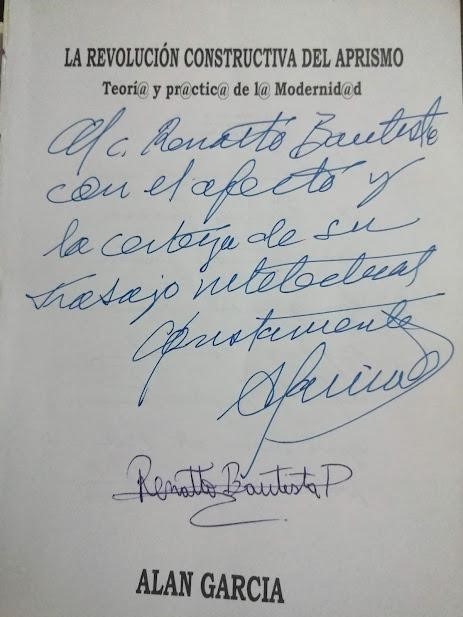 LA REVOLUCIÓN CONSTRUCTIVA DEL APRISMO
Teorí@ y pr@ctic@ de l@ Modernid@d
Al c. Renatto Bautista
con el afecto y
la certeza de su
trabajo intelectual
Apristamente
AGarcía
Renatto Bautista P
ALAN GARCIA